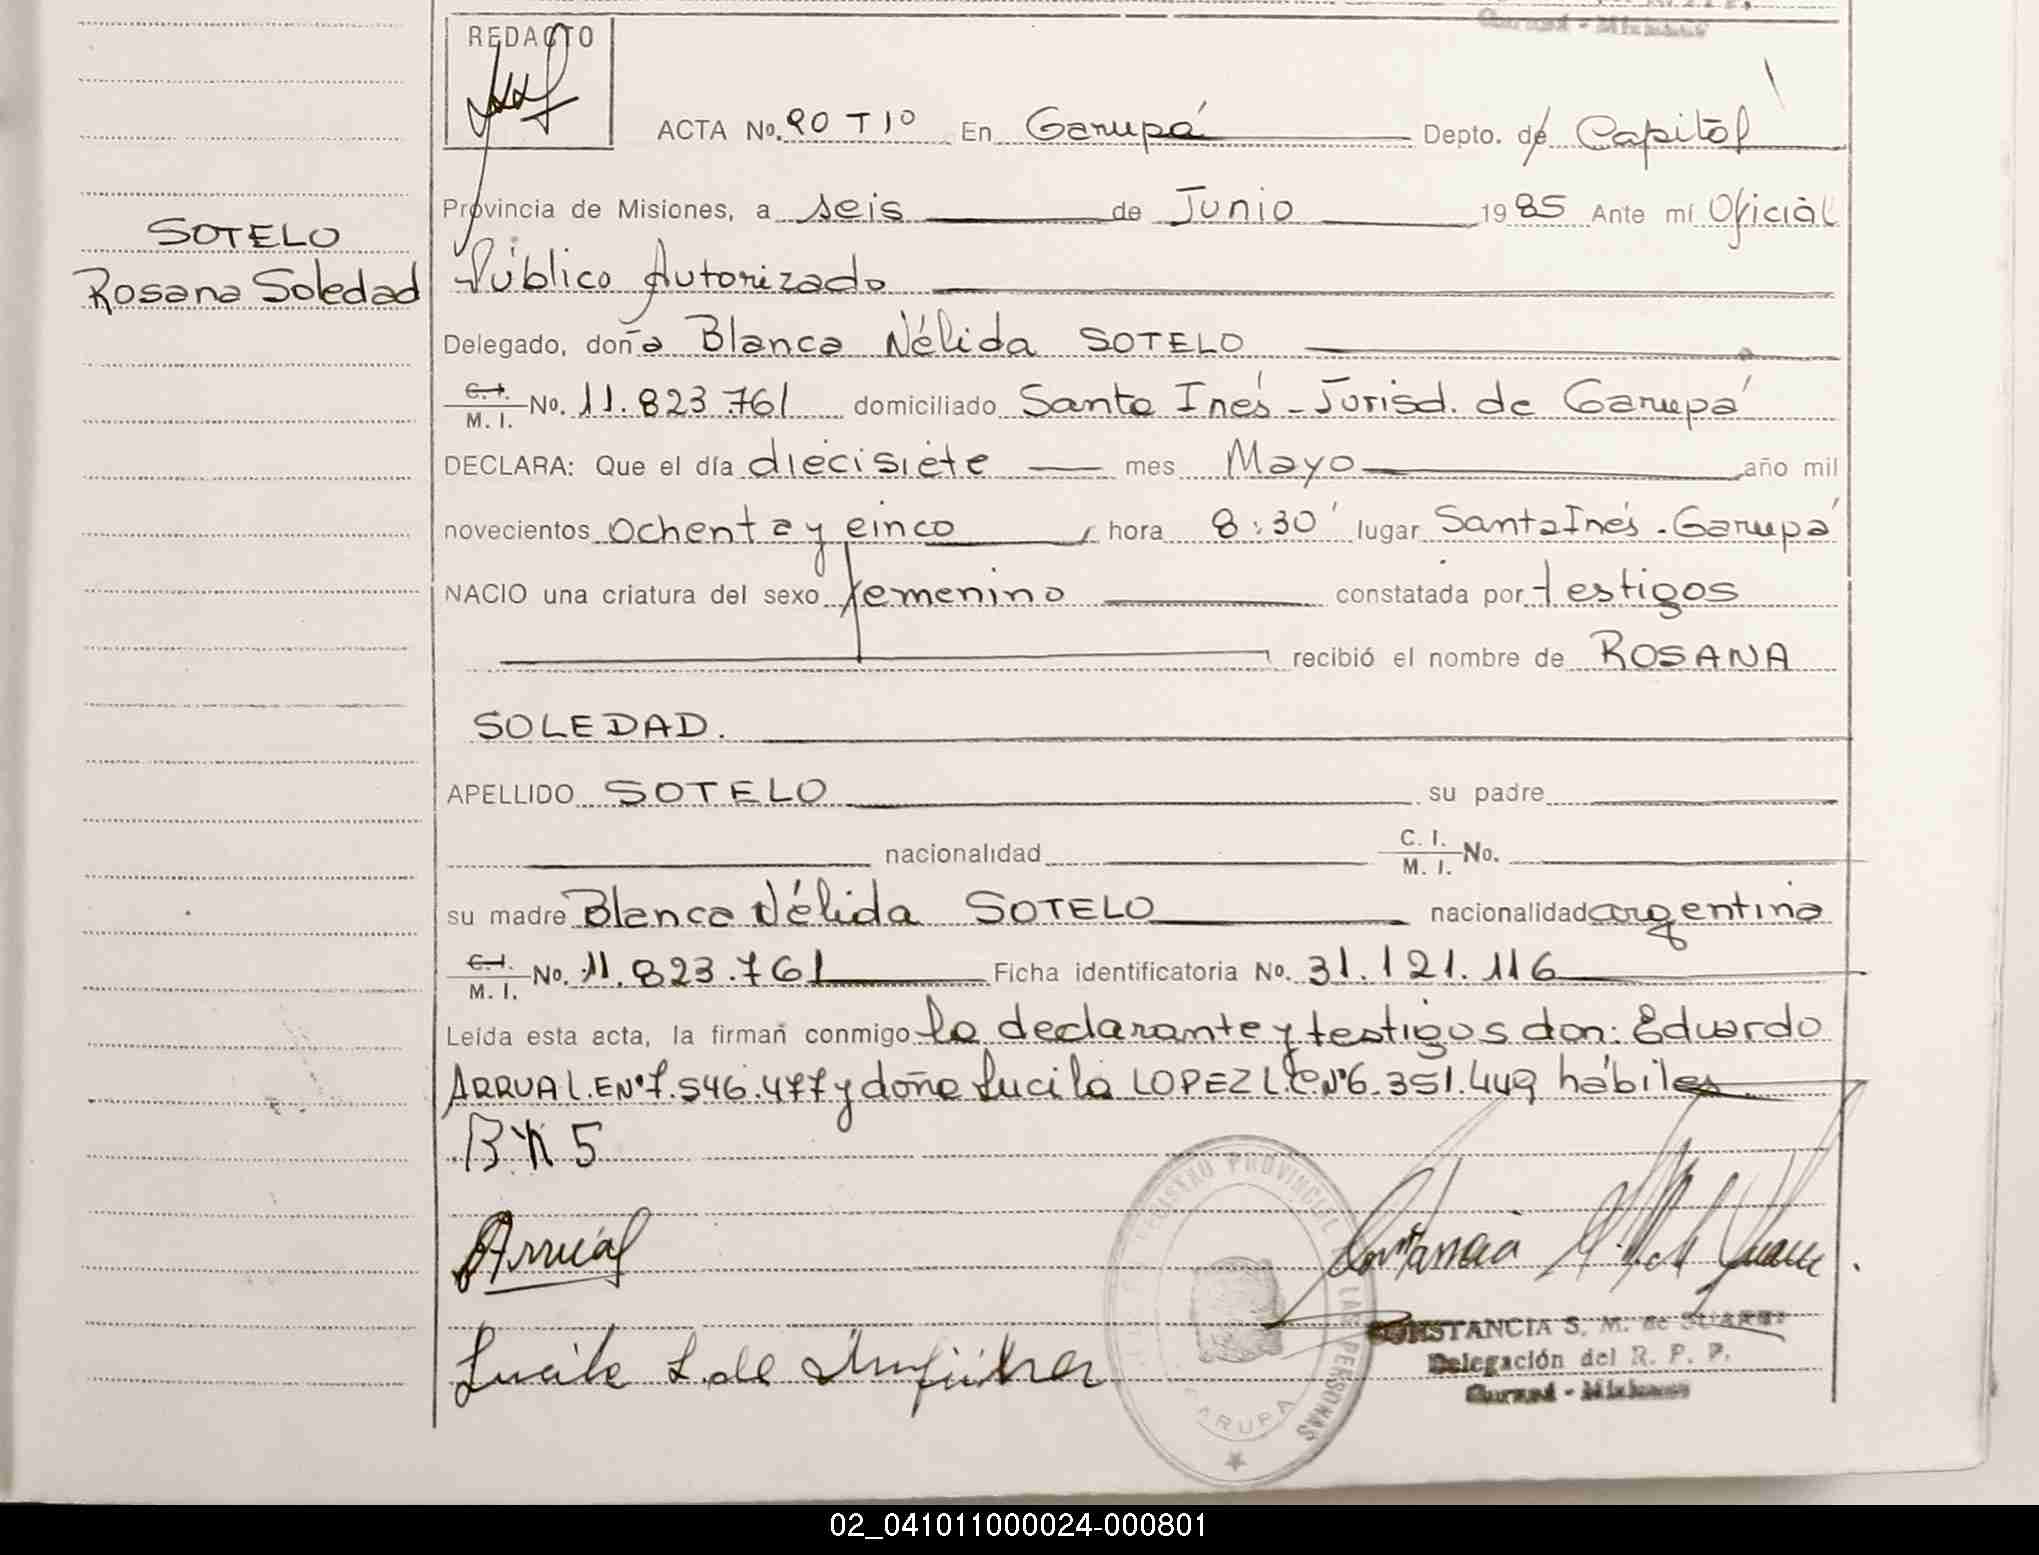 REDACTO
ACTA No. 90 T 1º En Garupá Depto. de Capital
Provincia de Misiones, a seis de Junio 1985 Ante mí Oficial
SOTELO
Rosana Soledad
Público Autorizado
Delegado, doña Blanca Nélida SOTELO
C. I.
M. I. No. 11.823.761 domiciliado Santa Inés - Jurisd. de Garupá
DECLARA: Que el día diecisiete mes Mayo año mil
novecientos ochenta y cinco, hora 8:30' lugar Santa Inés - Garupá
NACIO una criatura del sexo femenino constatada por testigos
recibió el nombre de ROSANA
SOLEDAD.
APELLIDO SOTELO su padre
nacionalidad C. I.
M. I. No.
su madre Blanca Nélida SOTELO nacionalidad argentina
C. I.
M. I. No. 11.823.761 Ficha identificatoria No. 31.121.116
Leída esta acta, la firman conmigo la declarante y testigos don: Eduardo
ARRUA L.E Nº 7.546.477 y doña Lucila LOPEZ L.C Nº 6.351.449 hábiles
B N S
Arrua
Lucila L. de
REGISTRO PROVINCIAL DE LAS PERSONAS
GARUPA
CONSTANCIA S. M. de SUAREZ
Delegación del R. P. P.
Garupá - Misiones
02_041011000024-000801